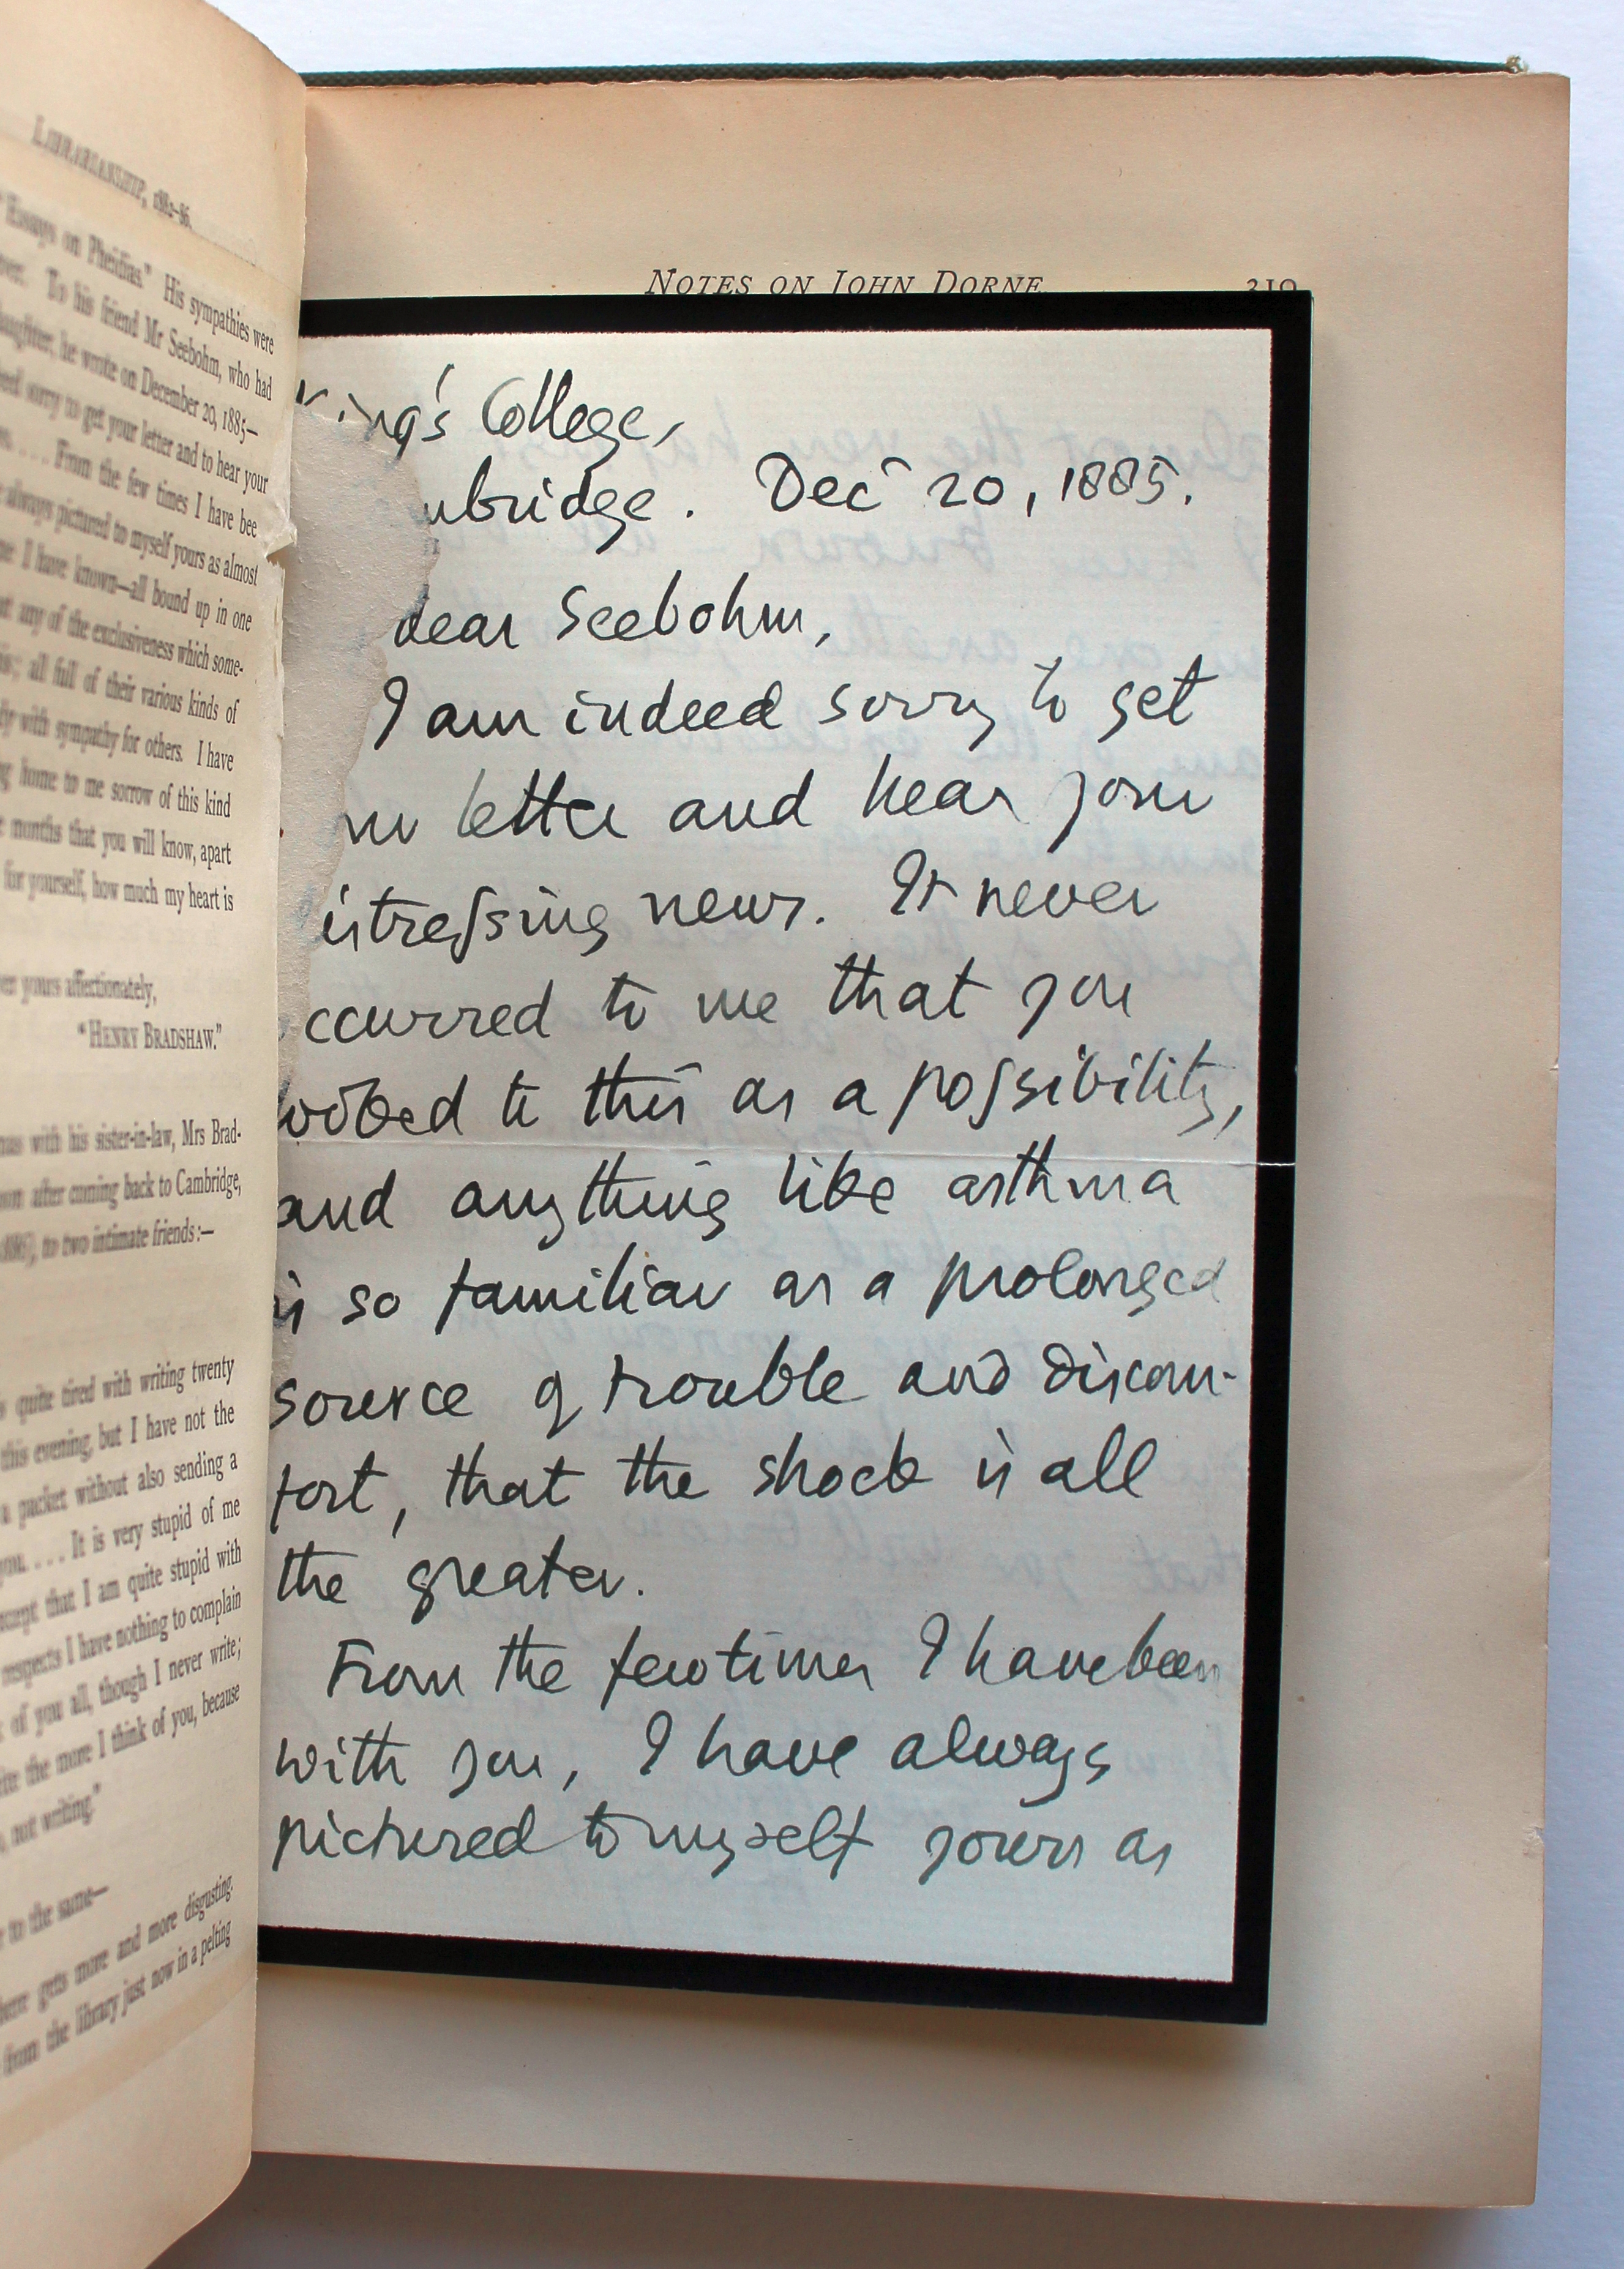 LIBRARIANSHIP, 1882–86.
Essays on Pheidias." His sympathies were
To his friend Mr Seebohm, who had
he wrote on December 20, 1885—
sorry to get your letter and to hear your
.... From the few times I have bee
always pictured to myself yours as almost
I have known—all bound up in one
any of the exclusiveness which some-
all full of their various kinds of
with sympathy for others. I have
home to me sorrow of this kind
months that you will know, apart
for yourself, how much my heart is
yours affectionately,
"HENRY BRADSHAW."
with his sister-in-law, Mrs Brad-
after coming back to Cambridge,
to two intimate friends:—
quite tired with writing twenty
this evening, but I have not the
a packet without also sending a
you.... It is very stupid of me
that I am quite stupid with
respects I have nothing to complain
of you all, though I never write;
the more I think of you, because
not writing."
to the same—
gets more and more disgusting.
from the library just now in a pelting
NOTES ON JOHN DORNE 319
King's College,
mbridge. Decr 20, 1885.
dear Seebohm,
I am indeed sorry to get
ur letter and hear your
istressing news. It never
ccurred to me that you
ooked to this as a possibility,
and anything like asthma
is so familiar as a prolonged
source of trouble and discom-
fort, that the shock is all
the greater.
From the few times I have been
with you, I have always
pictured to myself yours as